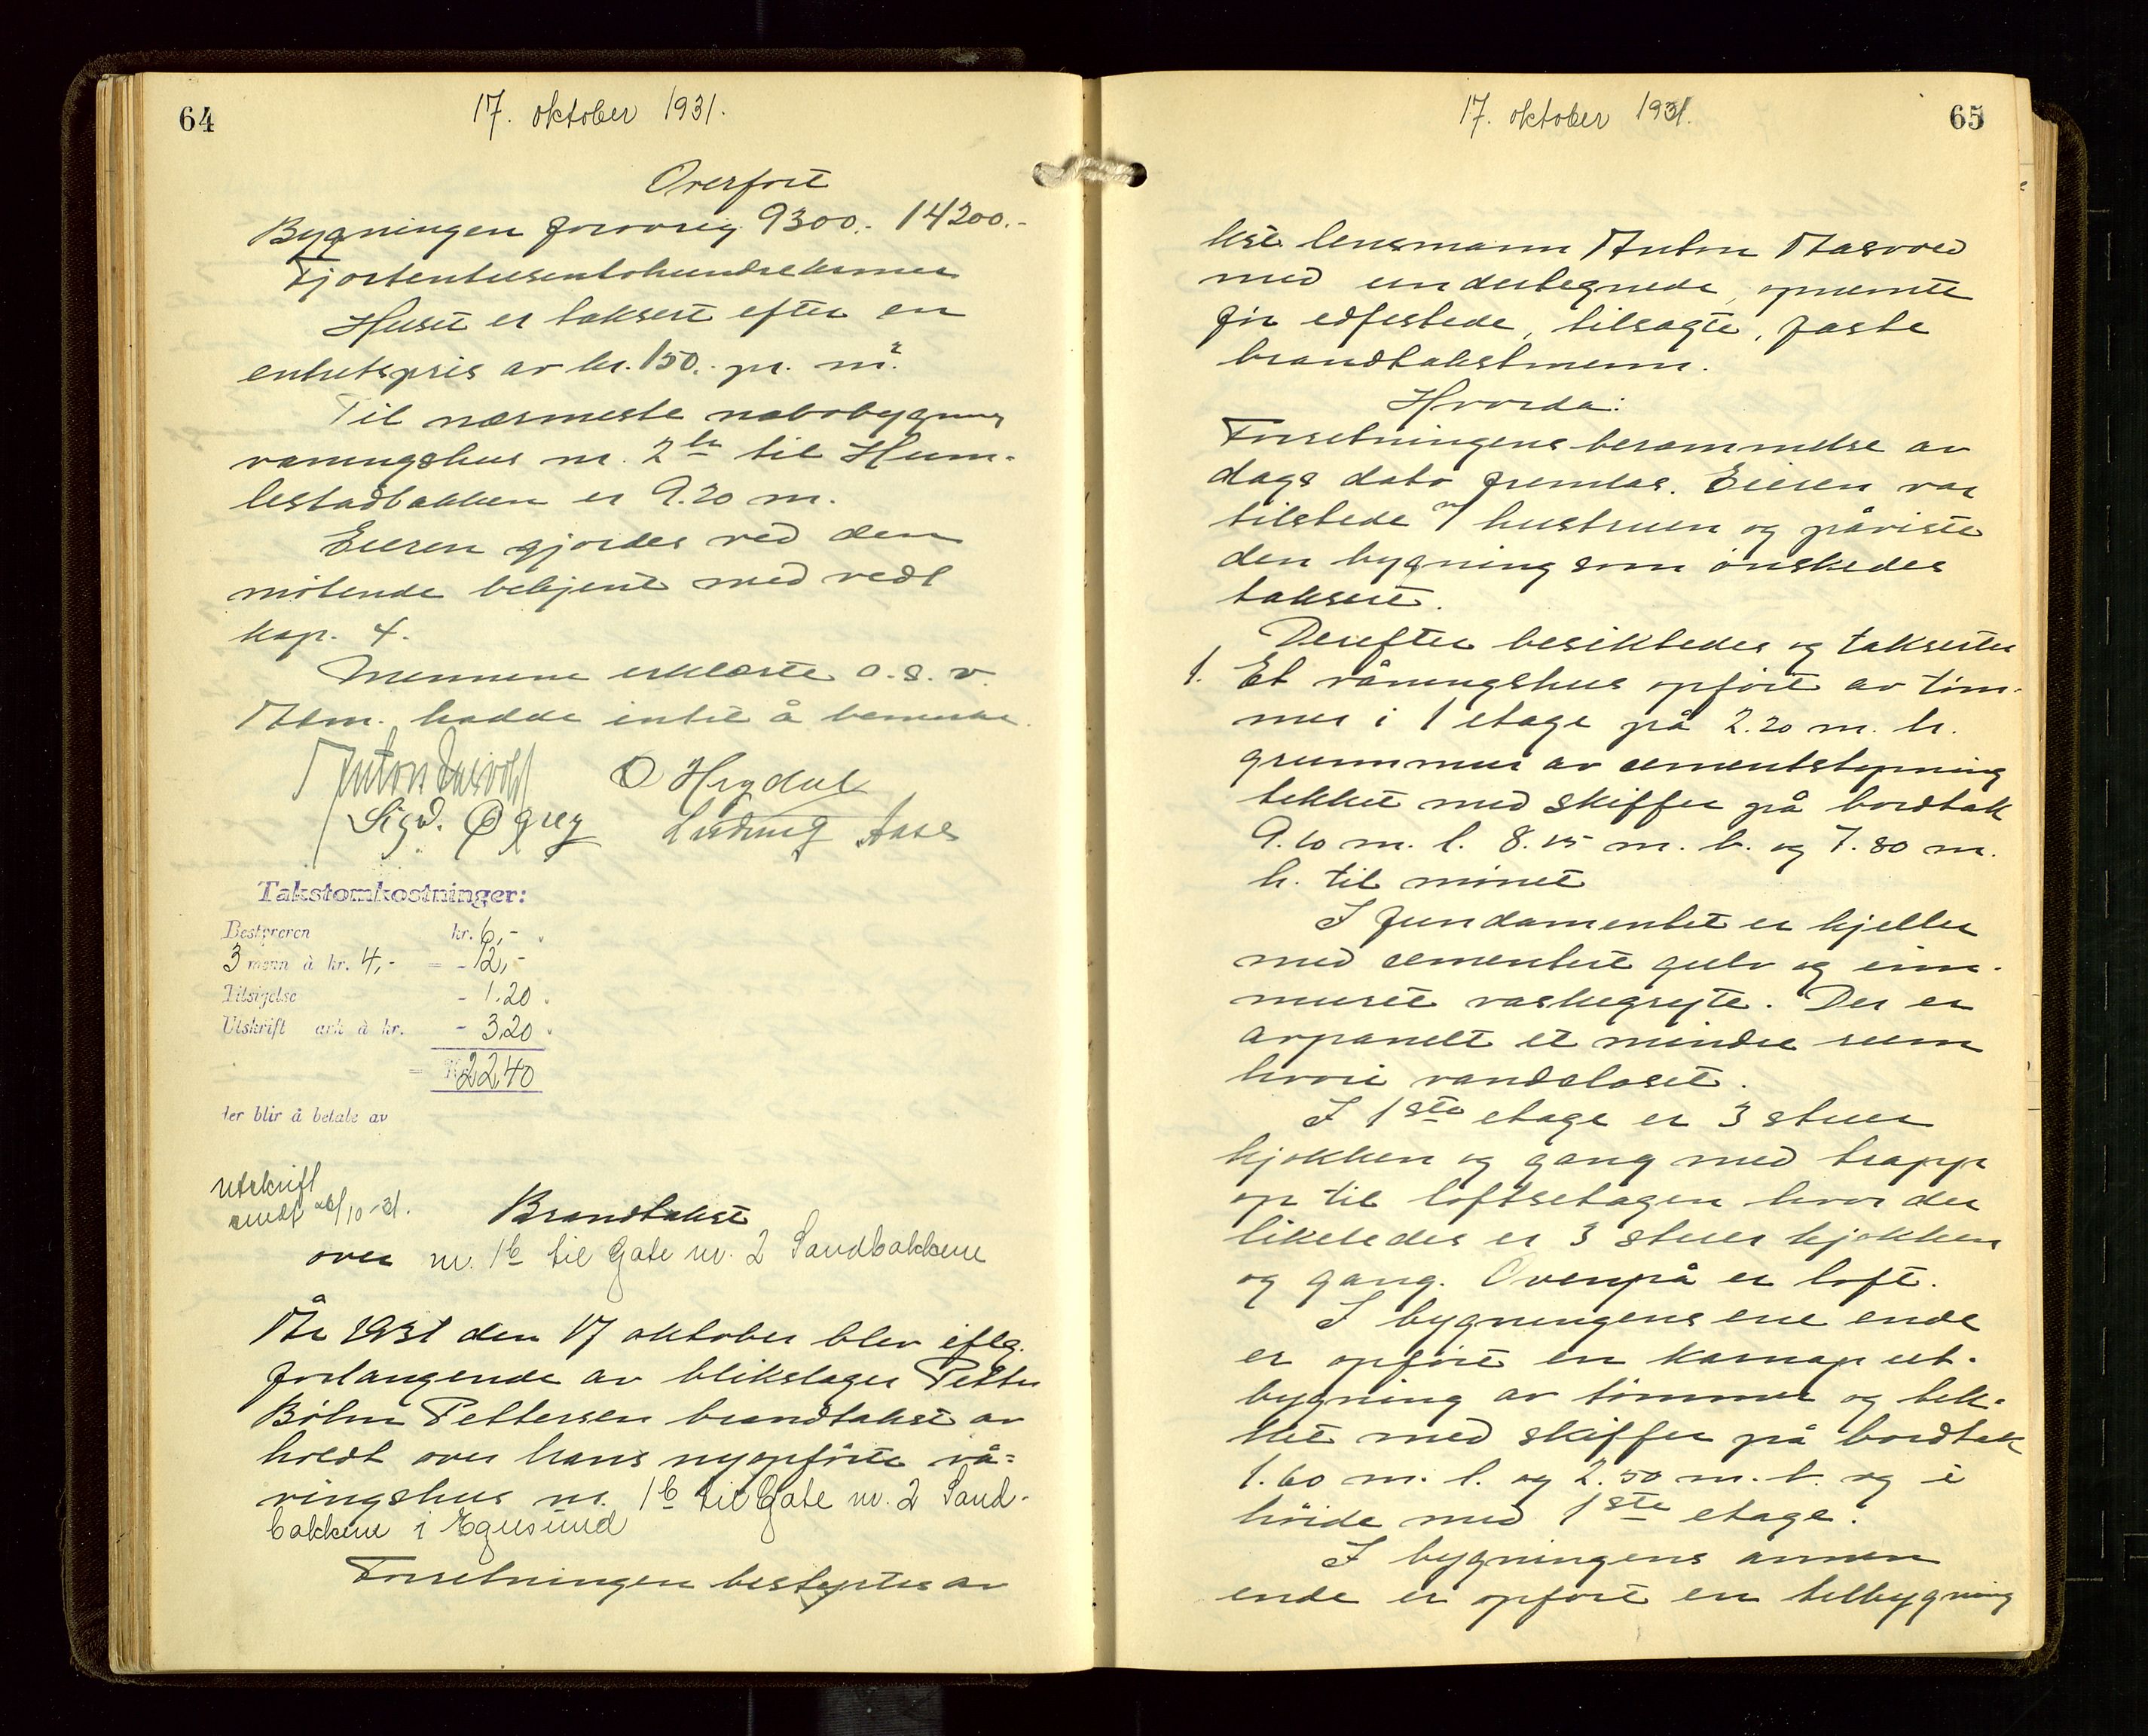 64
17. oktober 1931.
Overført
Bygningen forøvrig 9300.- 14200.-
Fjortentusentohundrekroner
Huset er taksert efter en
enhetspris av kr. 150.- pr. m².
Til nærmeste nabobygning
våningshus nr. 2 til Hum-
lestadbakken er 9.20 m.
Eieren gjordes ved den
møtende bekjent med vedt
kap. 4.
Mennene erklærte o.s.v.
hadde intet å bemerke.
O Hegdal
Sigd. Ludvig Aase
Takstomkostninger:
Bestyreren kr. 6,-
3 menn à kr. 4,- = - 12,-
Tilsigelse - 1.20
Utskrift ark à kr. - 3.20
= Kr. 22.40
der blir å betale av
Utskrift
sendt 26/10-31.
Brandtakst
over nr. 1b til Gate nr. 2 Sandbakkene
År 1931 den 17 oktober blev iflg.
forlangende av blikslager Petter
Böhm Pettersen brandtakst av
holdt over hans nyopførte vå-
ningshus nr. 1b til Gate nr. 2 Sand-
bakkene i Egersund
Forretningen bestyrtes av
17. oktober 1931.
65
kst. lensmann Anton Aasvold
med undertegnede, opnevnte
før edfestede, tilsagte, faste
brandtakstmenn.
Hvorda:
Forretningens berammelse av
dags dato fremlas. Eieren var
tilstede v/ hustruen og påviste
den bygning som ønskedes
taksert.
Derefter besiktedes og takserte
1. Et våningshus opført av tøm-
mer i 1 etage på 2.20 m. h.
grunnmur av cementstøpning
tekket med skiffer på bordtak
9.10 m. l. 8.15 m. b. og 7.80 m.
h. til mønet
I fundamentet er kjeller
med cementert gulv og inn-
muret vaskegryte. Der er
avpanelt et mindre rum
hvori vandcloset.
I 1ste etage er 3 stuer
kjøkken og gang med trapp
op til loftsetagen hvor der
likeledes er 3 stuer kjøkken
og gang. Ovenpå er loft.
I bygningens ene ende
er opført en karnap ut-
bygning av tømmer og tek-
ket med skiffer på bordtak
1.60 m. l. og 2.50 m. b. og i
høide med 1ste etage.
I bygningens annen
ende er opført en tilbygning